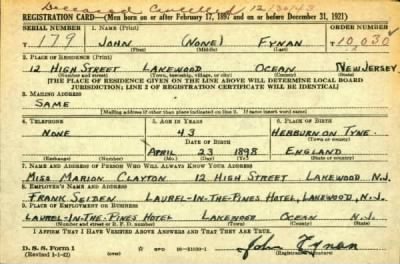 Deceased Cancelled 12/30/43
REGISTRATION CARD—(Men born on or after February 17, 1897 and on or before December 31, 1921)
SERIAL NUMBER 1. NAME (Print) ORDER NUMBER
T 179 JOHN (NONE) FYNAN T 10,030
(First) (Middle) (Last)
2. PLACE OF RESIDENCE (Print)
12 HIGH STREET LAKEWOOD OCEAN NEW JERSEY
(Number and street) (Town, township, village, or city) (County) (State)
[THE PLACE OF RESIDENCE GIVEN ON THE LINE ABOVE WILL DETERMINE LOCAL BOARD
JURISDICTION; LINE 2 OF REGISTRATION CERTIFICATE WILL BE IDENTICAL]
3. MAILING ADDRESS
SAME
[Mailing address if other than place indicated on line 2. If same insert word same]
4. TELEPHONE 5. AGE IN YEARS 6. PLACE OF BIRTH
NONE 43 HEBBURN ON TYNE
DATE OF BIRTH (Town or county)
APRIL 23 1898 ENGLAND
(Exchange) (Number) (Mo.) (Day) (Yr.) (State or country)
7. NAME AND ADDRESS OF PERSON WHO WILL ALWAYS KNOW YOUR ADDRESS
MISS MARION CLAYTON 12 HIGH STREET LAKEWOOD N.J.
8. EMPLOYER'S NAME AND ADDRESS
FRANK SEIDEN LAUREL-IN-THE-PINES HOTEL, LAKEWOOD, N.J.
9. PLACE OF EMPLOYMENT OR BUSINESS
LAUREL-IN-THE-PINES HOTEL LAKEWOOD OCEAN N.J.
(Number and street or R. F. D. number) (Town) (County) (State)
I AFFIRM THAT I HAVE VERIFIED ABOVE ANSWERS AND THAT THEY ARE TRUE.
D. S. S. Form 1
(Revised 1-1-42) (over) GPO 16-21630-1 John Fynan
(Registrant's signature)